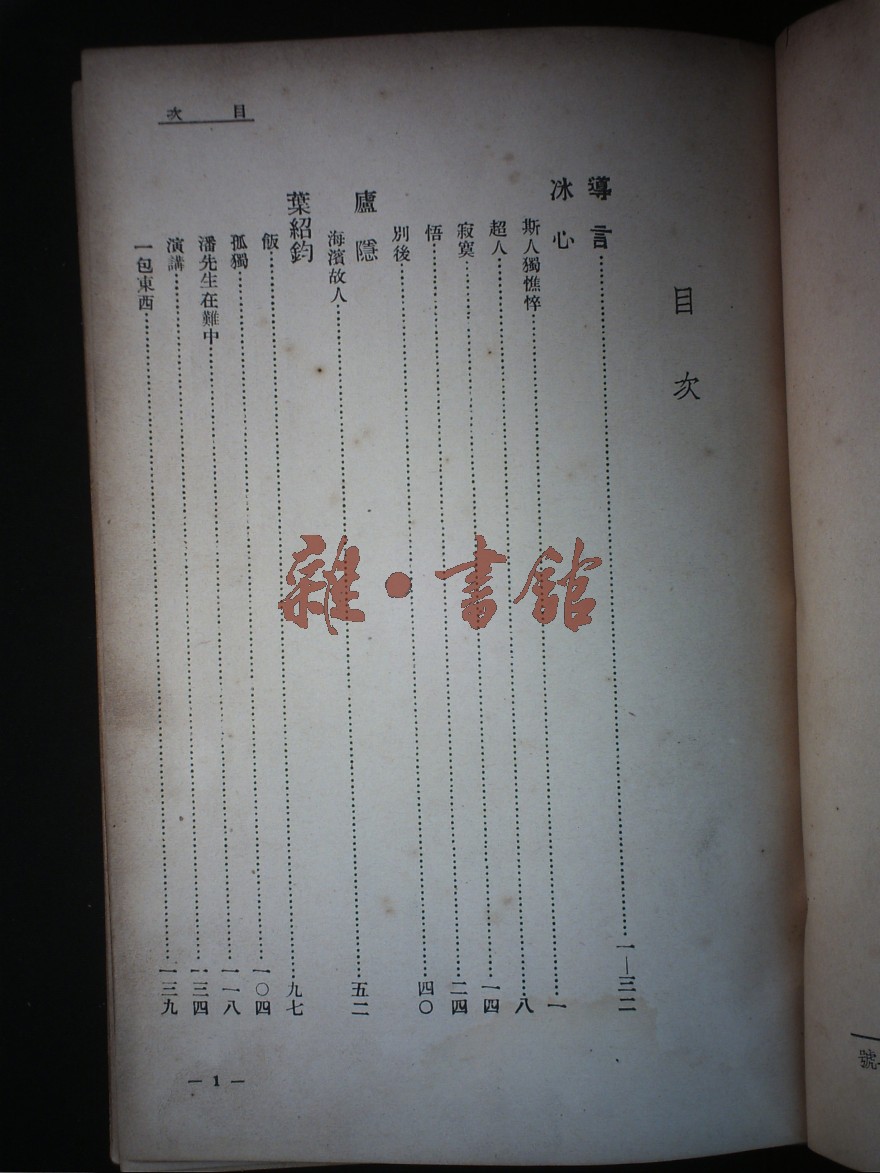 目　次
目　次
導言……一—三二
冰心
斯人獨憔悴……一
超人……八
寂寞……一四
悟……二四
別後……四〇
廬隱
海濱故人……五二
葉紹鈞
飯……九七
孤獨……一〇四
潘先生在難中……一一八
演講……一三四
一包東西……一三九
— 1 —
雜·書館
號